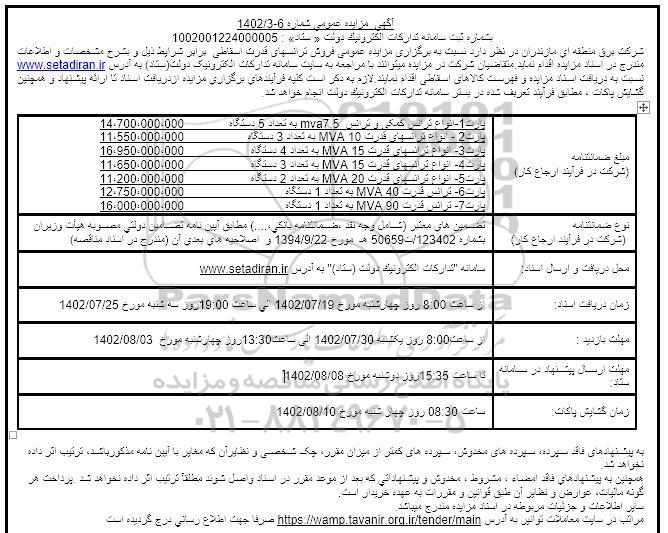 آگهي مزايده عمومي شماره 6-1402/3
بشماره ثبت سامانه تداركات الكترونيك دولت « ستاد» : 1002001224000005
شركت برق منطقه اي مازندران در نظر دارد نسبت به برگزاري مزايده عمومي فروش ترانسهاي قدرت اسقاطي برابر شرايط ذيل و بشرح مشخصات و اطلاعات
مندرج در اسناد مزايده اقدام نمايد.متقاضيان شركت در مزايده ميتوانند با مراجعه به سايت سامانه تداركات الكترونيك دولت(ستاد) به آدرس www.setadiran.ir
نسبت به دريافت اسناد مزايده و فهرست كالاهاي اسقاطي اقدام نمايند.لازم به ذكر است كليه فرآيندهاي برگزاري مزايده ازدريافت اسناد تا ارائه پيشنهاد و همچنين
گشايش پاكات ، مطابق فرآيند تعريف شده در بستر سامانه تداركات الكترونيك دولت انجام خواهد شد.
مبلغ ضمانتنامه
(شركت در فرآيند ارجاع كار)
پارت1-انواع ترانس كمكي و ترانس mva7.5 به تعداد 5 دستگاه 14،700،000،000
پارت2- انواع ترانسهاي قدرت MVA 10 به تعداد 3 دستگاه 11،550،000،000
پارت3- انواع ترانسهاي قدرت MVA 15 به تعداد 4 دستگاه 16،950،000،000
پارت4- انواع ترانسهاي قدرت MVA 15 به تعداد 3 دستگاه 11،650،000،000
پارت5- انواع ترانسهاي قدرت MVA 20 به تعداد 2 دستگاه 11،200،000،000
پارت6- ترانس قدرت MVA 40 به تعداد 1 دستگاه 12،750،000،000
پارت7- ترانس قدرت MVA 90 به تعداد 1 دستگاه 16،000،000،000
نوع ضمانتنامه
(شركت در فرآيند ارجاع كار):
تضمين هاي معتبر (شامل وجه نقد ،ضمانتنامه بانكي،....) مطابق آيين نامه تضامين دولتي مصوبه هيأت وزيران
بشماره 123402/ت50659 هـ مورخ 1394/9/22 و اصلاحيه هاي بعدي آن (مندرج در اسناد مناقصه)
محل دريافت و ارسال اسناد:
سامانه "تداركات الكترونيك دولت (ستاد)" به آدرس www.setadiran.ir
زمان دريافت اسناد:
از ساعت 8:00 روز چهارشنبه مورخ 1402/07/19 الي ساعت 19:00روز سه شنبه مورخ 1402/07/25
مهلت بازديد :
از ساعت8:00 روز يكشنبه 1402/07/30 الي ساعت13:30روز چهارشنبه مورخ 1402/08/03
مهلت ارسال پيشنهاد در سامانه
ستاد:
تا ساعت 15:35روز دوشنبه مورخ 1402/08/08
زمان گشايش پاكات:
ساعت 08:30 روز چهار شنبه مورخ 1402/08/10
پايگاه اطلاع رساني مناقصه و مزايده
۰۲۱-۸۸۳۴۹۶۷۰-۵
به پيشنهادهاي فاقد سپرده، سپرده هاي مخدوش، سپرده هاي كمتر از ميزان مقرر، چک شخصي و نظايرآن كه مغاير با آيين نامه مذكورباشد، ترتيب اثر داده
نخواهد شد.
همچنين به پيشنهادهاي فاقد امضاء ، مشروط ، مخدوش و پيشنهاداتي كه بعد از موعد مقرر در اسناد واصل شوند مطلقاً ترتيب اثر داده نخواهد شد .پرداخت هر
گونه ماليات، عوارض و نظاير آن طبق قوانين و مقررات به عهده خريدار است.
ساير اطلاعات و جزئيات مربوطه در اسناد مزايده مندرج ميباشد.
مراتب در سايت معاملات توانير به آدرس https://wamp.tavanir.org.ir/tender/main صرفا جهت اطلاع رساني درج گرديده است